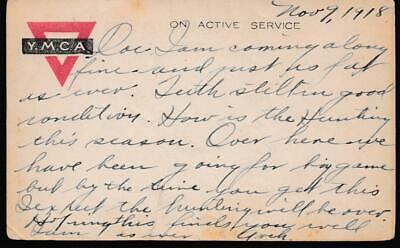 Nov 9, 1918
ON ACTIVE SERVICE
Y.M.C.A
Doc I am coming along
fine and just as fat
as ever. Teeth still in good
condition. How is the Hunting
this season. Over here we
have been going for big game
but by the time you get this
I expect the hunting will be over.
Hoping this finds you well
I am as ever